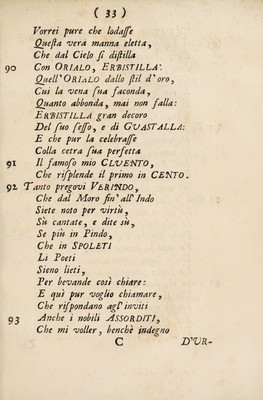 ( 33 )
Vorrei pure che lodaſſe
Queſta vera manna eletta,
Che dal Cielo ſi diſtilla
90 Con ORIALO, ERBISTILLA:
Quell' ORIALO dallo ſtil d'oro,
Cui la vena ſua faconda,
Quanto abbonda, mai non falla:
ERBISTILLA gran decoro
Del ſuo ſeſſo, e di GUASTALLA:
E che pur la celebraſſe
Colla cetra ſua perfetta
91 Il famoſo mio CLUENTO,
Che riſplende il primo in CENTO.
92 Tanto pregovi VERINDO,
Che dal Moro ſin' all' Indo
Siete noto per virtù,
Sù cantate, e dite sù,
Se più in Pindo,
Che in SPOLETI
Li Poeti
Sieno lieti,
Per bevande così chiare:
E quì pur voglio chiamare,
Che riſpondano agl' inviti
93 Anche i nobili ASSORDITI,
Che mi voller, benchè indegno
C D'UR-